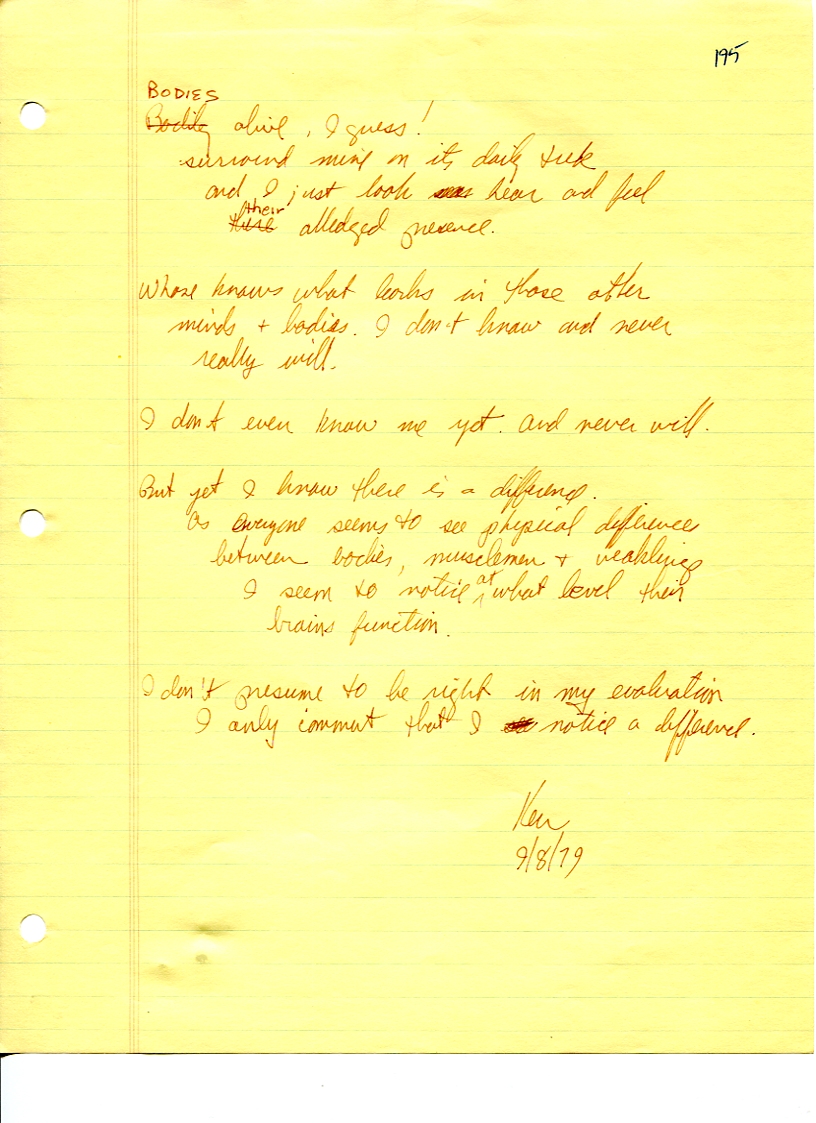 195
BODIES
Bodily alive, I guess!
surround mine on its daily trek
and I just look hear and feel
their
these alledged presence.
Whose knows what lurks in those other
minds + bodies. I don't know and never
really will.
I don't even know me yet. and never will.
But yet I know there is a difference.
as everyone seems to see physical differences
between bodies, musclemen + weaklings
I seem to notice at what level their
brains function.
I don't presume to be right in my evaluation
I only comment that I notice a difference.
Ken
9/8/79